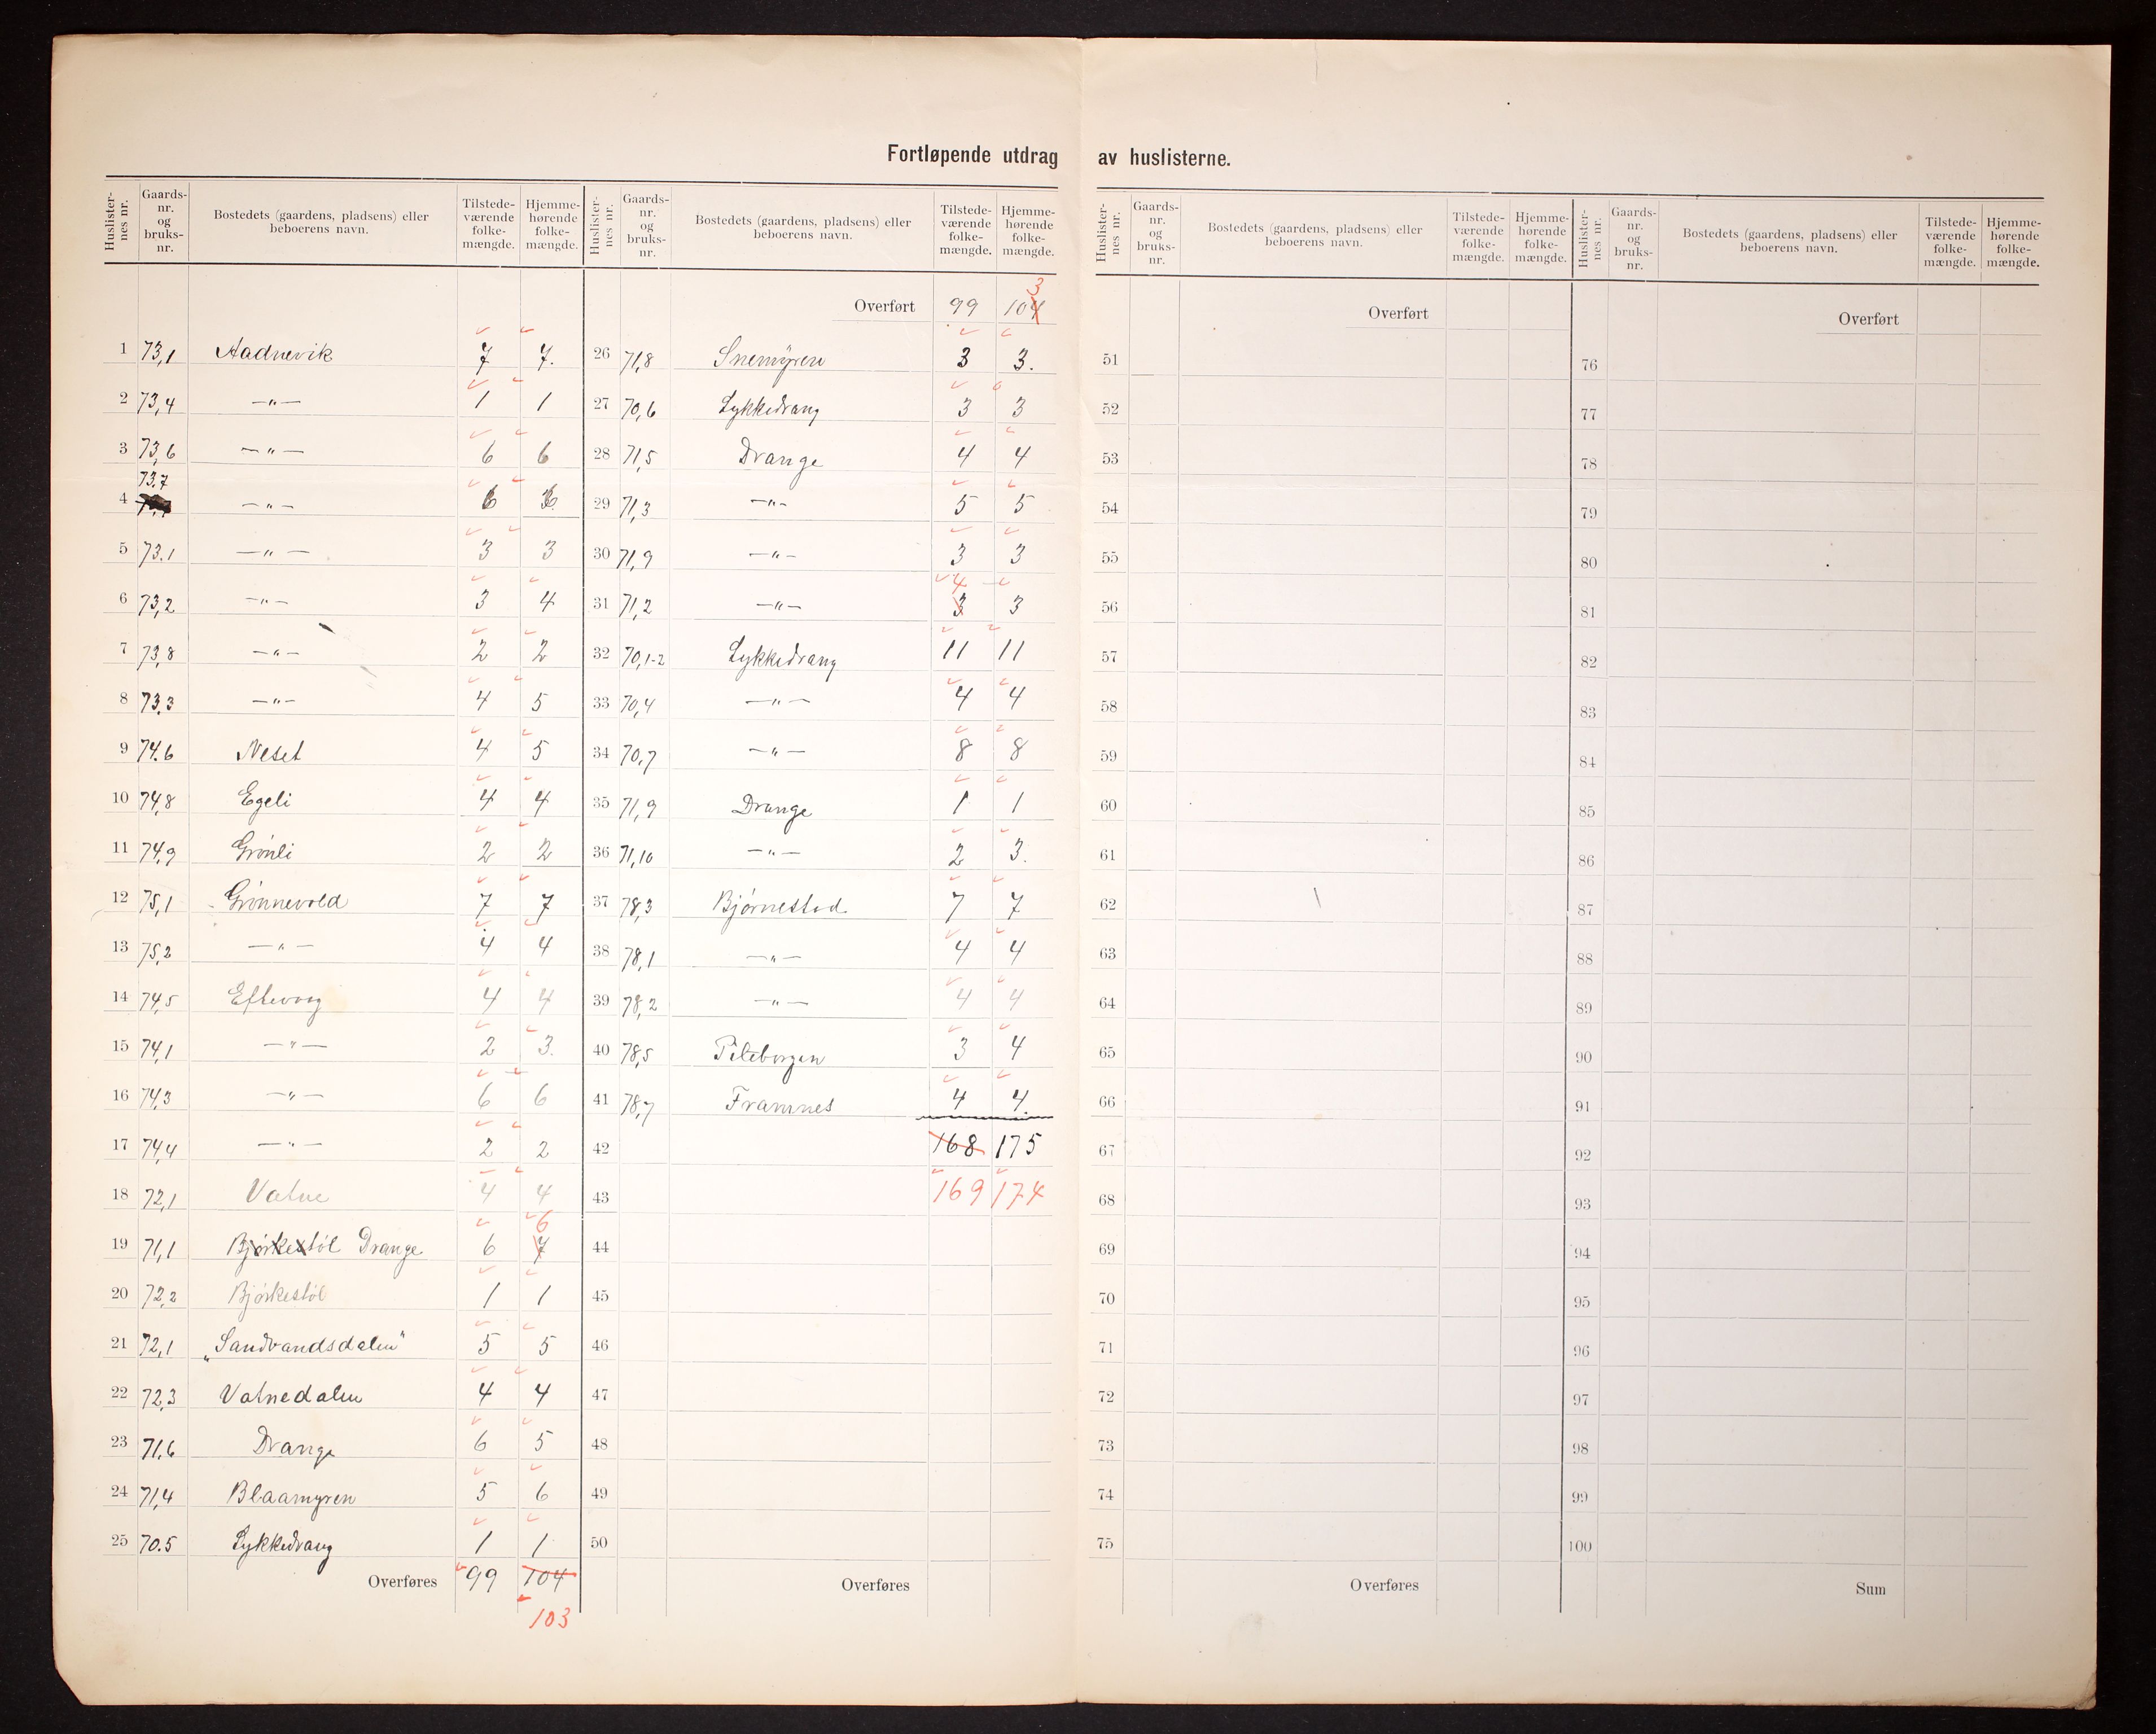 Fortløpende utdrag av huslisterne.
Huslister-nes nr. Gaards-nr. og bruks-nr. Bostedets (gaardens, pladsens) eller beboerens navn. Tilstede-værende folke-mængde. Hjemme-hørende folke-mængde.
1 73,1 Aadnevik 7 7.
2 73,4 —"— 1 1
3 73,6 —"— 6 6
4 73.7 —"— 6 6
5 73.1 —"— 3 3
6 73,2 —"— 3 4
7 73,8 —"— 2 2
8 73.3 —"— 4 5
9 74.6 Neset 4 5
10 74,8 Egeli 4 4
11 74,9 Grønli 2 2
12 75,1 Grønnevold 7 7
13 75,2 —"— 4 4
14 74,5 Eftevaag 4 4
15 74,1 —"— 2 3.
16 74,3 —"— 6 6
17 74,4 —"— 2 2
18 72,1 Vatne 4 4
19 71,1 Bjørkestøl Drange 6 7 6
20 72,2 Bjørkestøl 1 1
21 72,1 „Sandvandsdalen" 5 5
22 72,3 Vatnedalen 4 4
23 71,6 Drange 6 5
24 71,4 Blaamyren 5 6
25 70.5 Lykkedrang 1 1
Overføres 99 104
103
Huslister-nes nr. Gaards-nr. og bruks-nr. Bostedets (gaardens, pladsens) eller beboerens navn. Tilstede-værende folke-mængde. Hjemme-hørende folke-mængde.
Overført 99 104 3
26 71,8 Snemyren 3 3.
27 70,6 Lykkedrang 3 3
28 71,5 Drange 4 4
29 71,3 —"— 5 5
30 71,9 —"— 3 3
31 71,2 —"— 3 4 3
32 70,1-2 Lykkedrang 11 11
33 70,4 —"— 4 4
34 70,7 —"— 8 8
35 71,9 Drange 1 1
36 71,10 —"— 2 3.
37 78,3 Bjørnestad 7 7
38 78,1 —"— 4 4
39 78,2 —"— 4 4
40 78,5 Pileborgen 3 4
41 78,7 Framnes 4 4.
42 168 175
43 169 174
44
45
46
47
48
49
50
Overføres
Huslister-nes nr. Gaards-nr. og bruks-nr. Bostedets (gaardens, pladsens) eller beboerens navn. Tilstede-værende folke-mængde. Hjemme-hørende folke-mængde.
Overført
51
52
53
54
55
56
57
58
59
60
61
62
63
64
65
66
67
68
69
70
71
72
73
74
75
Overføres
Huslister-nes nr. Gaards-nr. og bruks-nr. Bostedets (gaardens, pladsens) eller beboerens navn. Tilstede-værende folke-mængde. Hjemme-hørende folke-mængde.
Overført
76
77
78
79
80
81
82
83
84
85
86
87
88
89
90
91
92
93
94
95
96
97
98
99
100
Sum